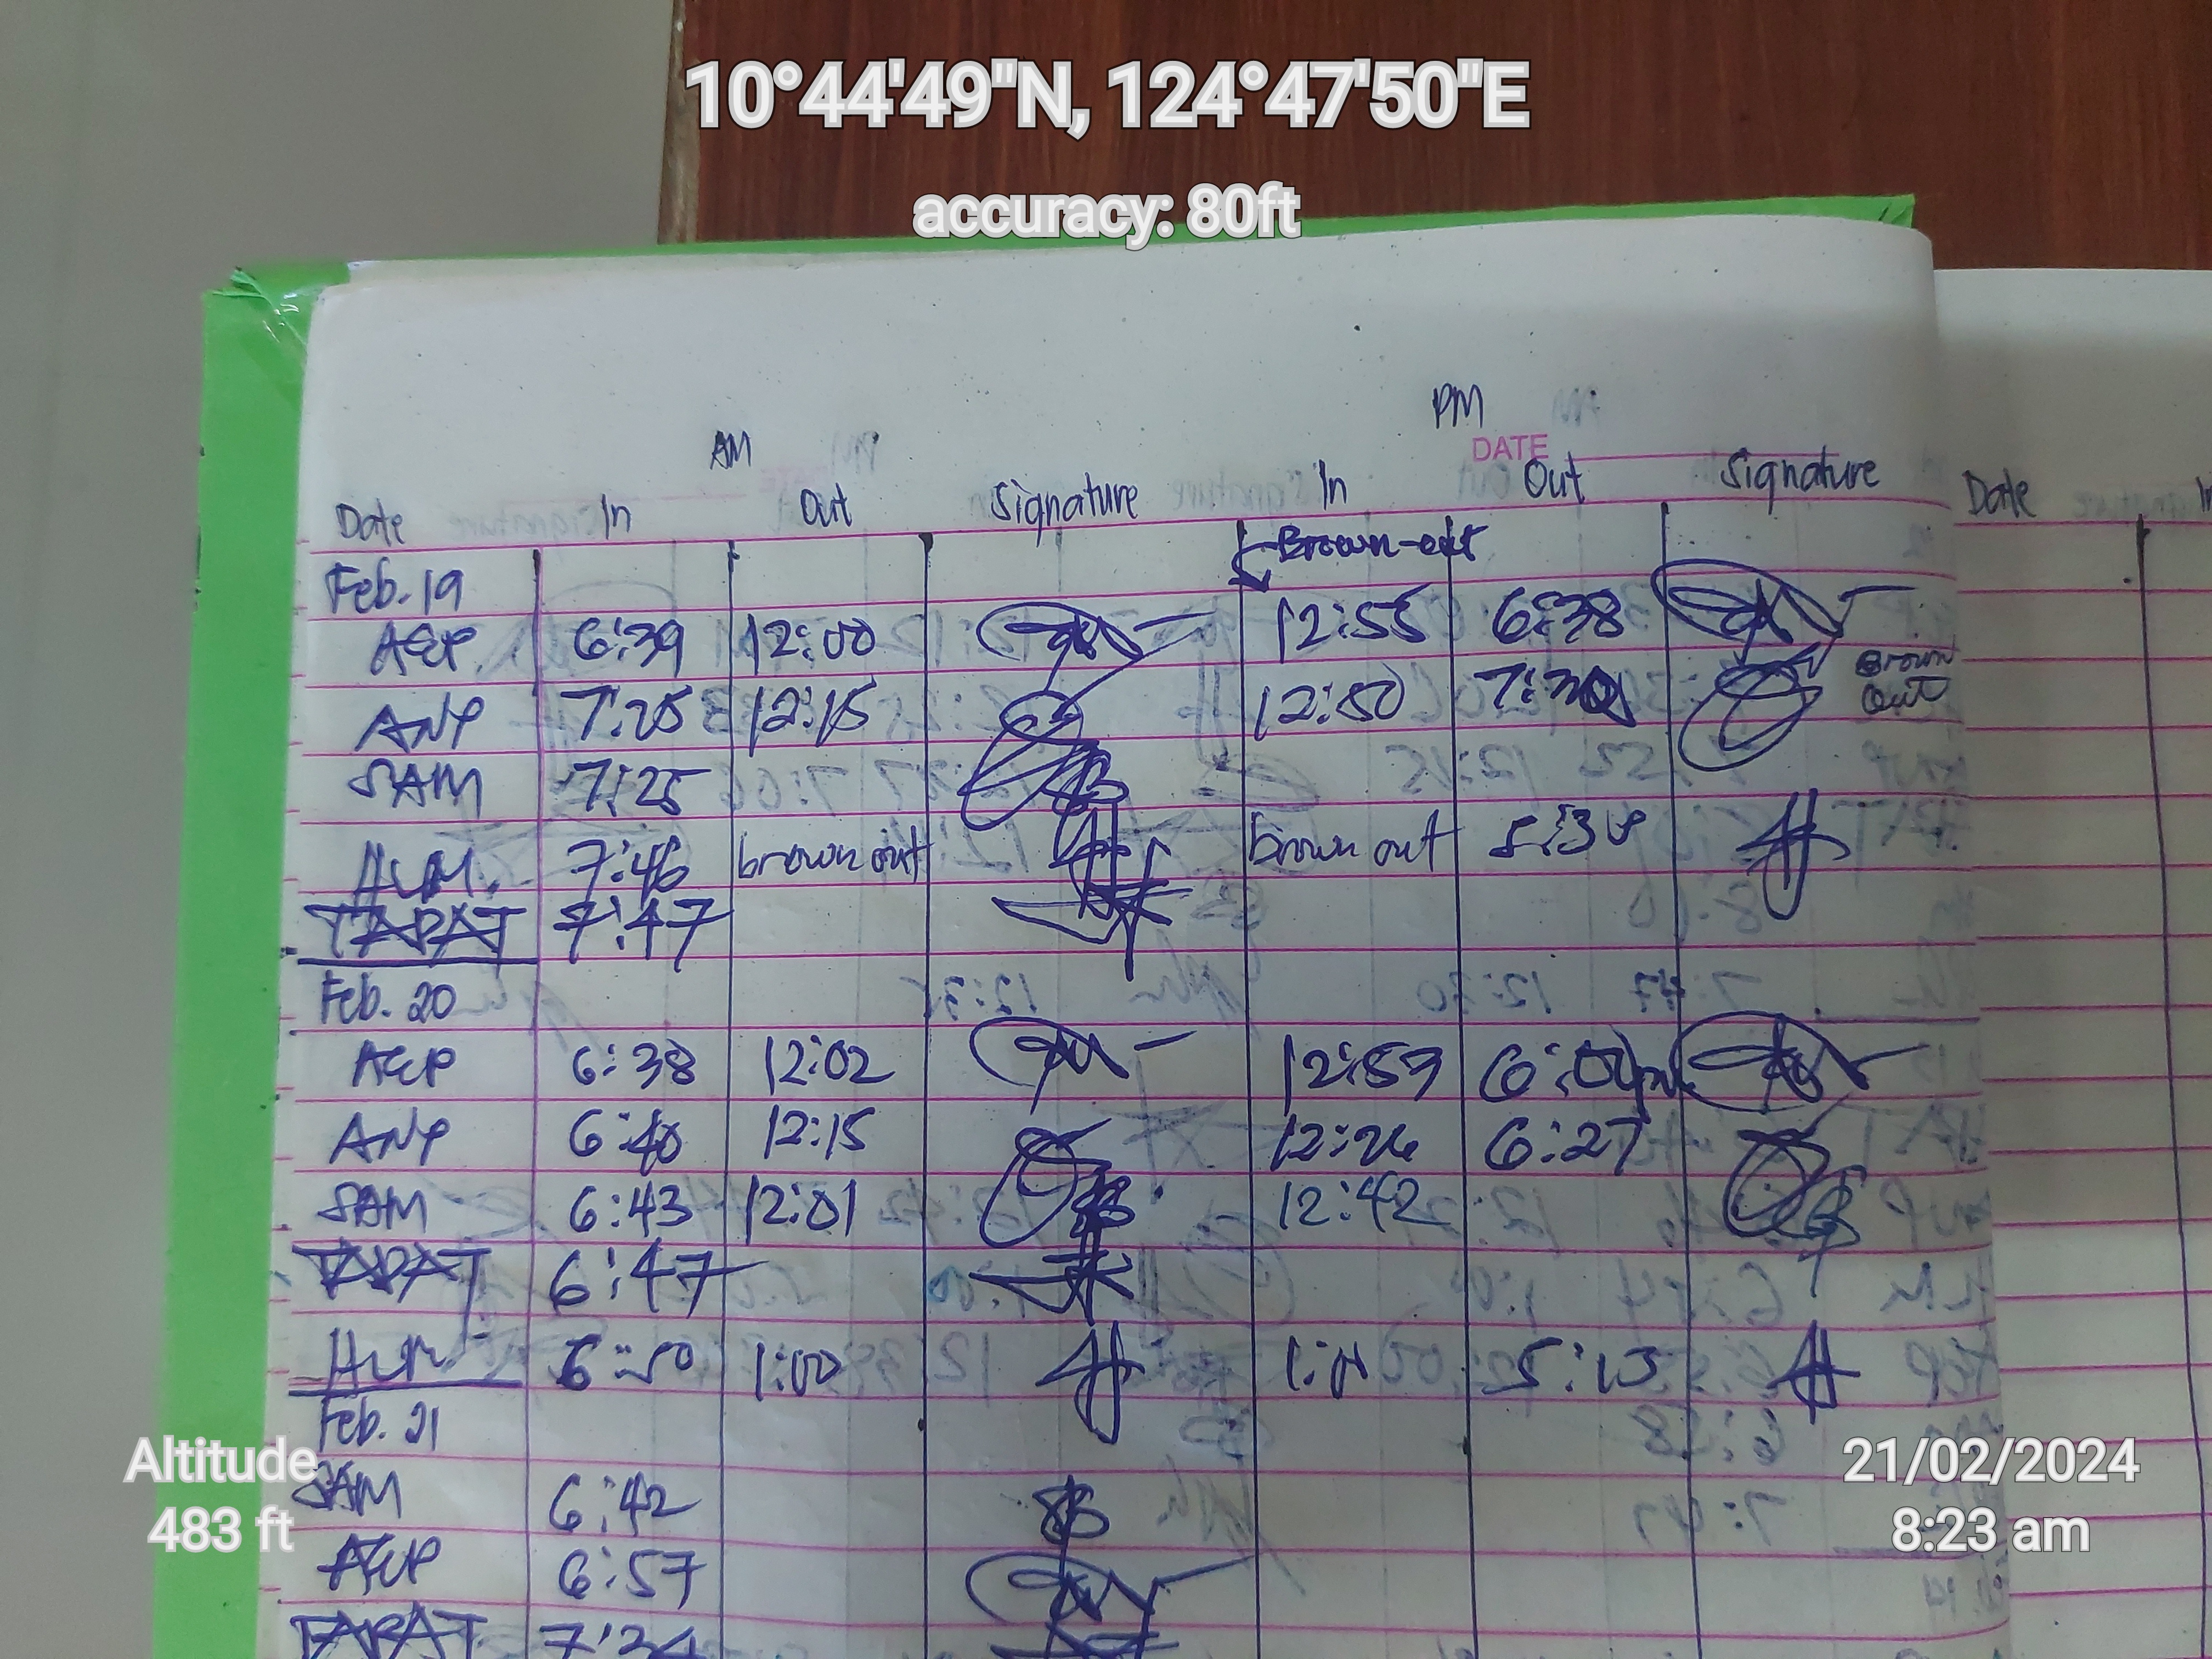 10°44'49"N, 124°47'50"E
accuracy: 80ft
AM PM
DATE
Date In Out Signature In Out Signature Date In
Brown-out
Feb. 19
AEP 6:39 12:00 12:55 6:38
ANP 7:25 12:15 12:50 Brown Out
SAM 7:25
HLM 7:46 brown out brown out 5:38
TAPAT 7:47
Feb. 20
AEP 6:38 12:02 12:57 6:00pm
ANP 6:40 12:15 12:26 6:27
SAM 6:43 12:01 12:42
TAPAT 6:47
HLM 6:50 1:00 1:01 5:13
Feb. 21
SAM 6:42
AEP 6:57
TAPAT
Altitude
483 ft
21/02/2024
8:23 am